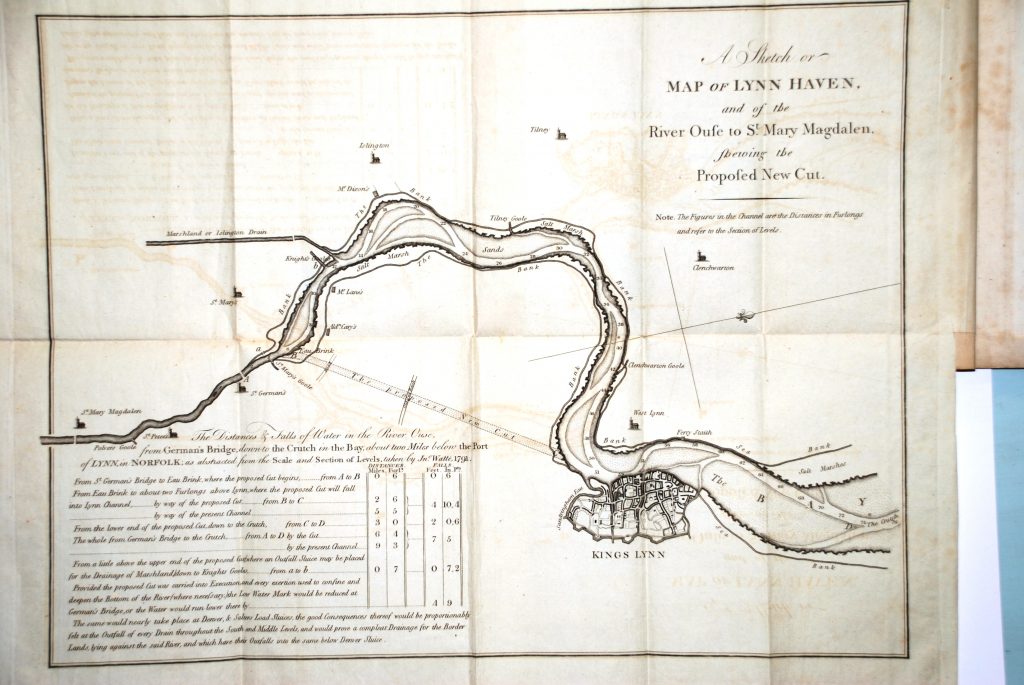 A Sketch or
MAP OF LYNN HAVEN,
and of the
River Ouſe to St. Mary Magdalen,
ſhewing the
Propoſed New Cut.
Note. The Figures in the Channel are the Distances in Furlongs
and refer to the Section of Levels.
Tilney
Islington
Mr. Dixon's
The Bank
Tilney Goole
Salt Marsh
Marshland or Islington Drain
Knights Goole
b
Salt Marsh
The Bank
Sands
Clenchwarton
St. Mary's
Bank
Mc Lane's
Aldn. Cary's
Bank
a
Eau Brink
B
St. Mary's Goole
A
St. German's
The Proposed New Cut
Bank
Clenchwarton Goole
West Lynn
St. Mary Magdalen
St. Peters
Palvers Goole
Bank
Ferry Staith
Sea Bank
Salt Marshes
The BAY
D
Bank
KINGS LYNN
The Distances & Falls of Water in the River Ouse,
from German's Bridge, down to the Crutch in the Bay, about two Miles below the Port
of LYNN, in NORFOLK; as abstracted from the Scale and Section of Levels, taken by Jno. Watté, 1791.
DISTANCES FALLS
Miles. Furls. Feet. In. pts.
From St. German's Bridge to Eau Brink, where the proposed Cut begins, from A to B 0 6 0 6
From Eau Brink to about two Furlongs above Lynn, where the proposed Cut will fall
into Lynn Channel, by way of the proposed Cut from B to C 2 6 4 10.4
by way of the present Channel 5 5
From the lower end of the proposed Cut, down to the Crutch, from C to D 3 0 2 0.6
The whole from German's Bridge to the Crutch from A to D by the Cut 6 4 7 5
by the present Channel 9 3
From a little above the upper end of the proposed Cut where an Outfall Sluice may be placed
for the Drainage of Marshland, down to Knights Goole, from a to b 0 7 0 7.2
Provided the proposed Cut was carried into Execution, and every exertion used to confine and
deepen the Bottom of the River (where necessary,) the Low Water Mark would be reduced at
German's Bridge, or the Water would run lower there by 4 9
The same would nearly take place at Denver, & Salters Load Sluices, the good Consequences thereof would be proportionably
felt at the Outfall of every Drain throughout the South and Middle Levels, and would prove a compleat Drainage for the Border
Lands, lying against the said River, and which have their Outfalls into the same below Denver Sluice.